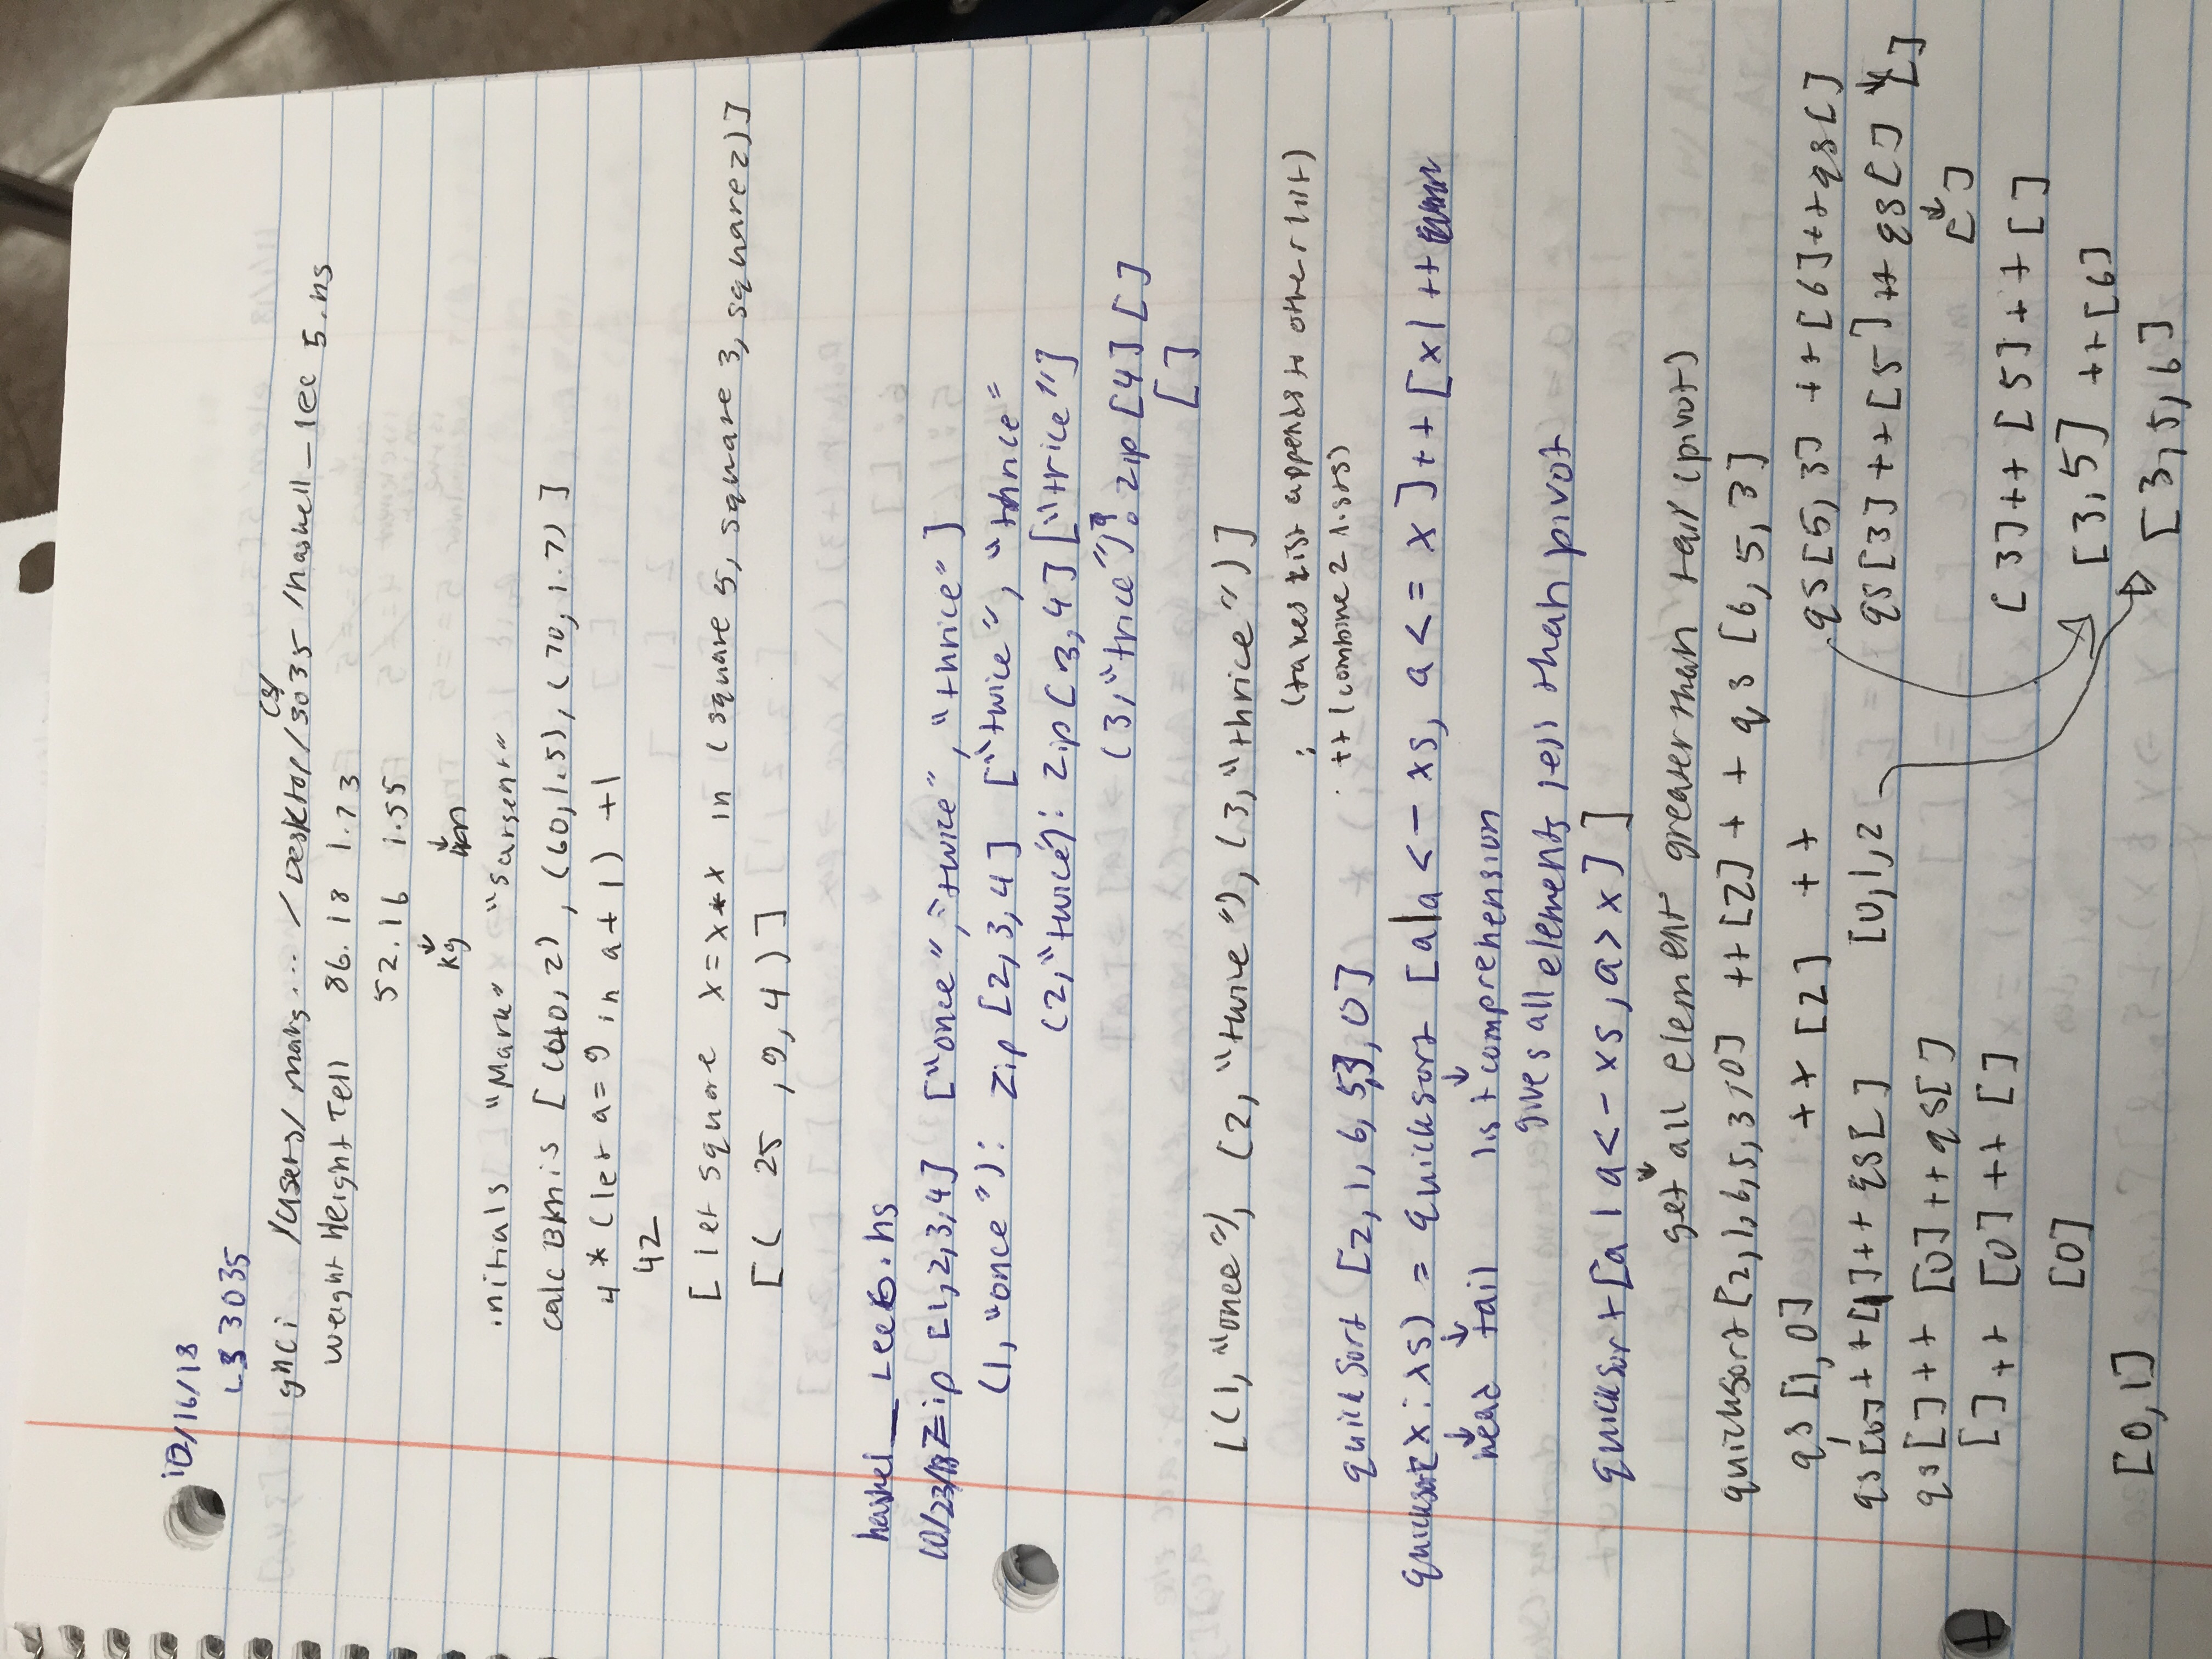 10/16/18
LS 3035
ghci /Users/ mars... / Desktop/CS/3035 /haskell_lec 5.hs
weight Height Tell 86.18 1.73
52.16 1.55
kg m
initials "Mark" "Sarsent"
calc BMis [(60, 2), (60, 1.5), (70, 1.7)]
4 * (let a = 9 in a + 1) + 1
42
[let square x = x * x in (square 5, square 3, square 2)]
[( 25, 9, 4)]
haskel_ Lec6.hs
10/23/18 Zip [1,2,3,4] ["once", "twice", "thrice"]
(1, "once"): Zip [2, 3, 4] ["twice", "thrice"
(2, "twice"): Zip [3, 4] ["trice"]
(3, "trice"): zip [4] []
[]
[(1, "once"), (2, "twice"), (3, "thrice")]
: (takes list appends to other list)
++ (combine 2 lists)
quick Sort [2, 1, 6, 5, 3, 0]
quicksort(x : xs) = quicksort [a|a <- xs, a <= x] ++ [x] ++
head tail list comprehension
gives all elements less than pivot
quicksort [a | a <- xs, a > x] ]
get all element greater than tail (pivot)
quicksort [2, 1, 6, 5, 3, 0] ++ [2] + + qs [6, 5, 3]
qs [1, 0] ++ [2] ++ qs [5, 3] ++ [6] ++ qs []
qs [0] ++ [1] ++ qs [] [0, 1, 2 qs [3] ++ [5] ++ qs [] []
qs [] ++ [0] ++ qs [] []
[] ++ [0] ++ [] [3] ++ [5] ++ []
[0] [3, 5] ++ [6]
[0, 1] [3, 5, 6]